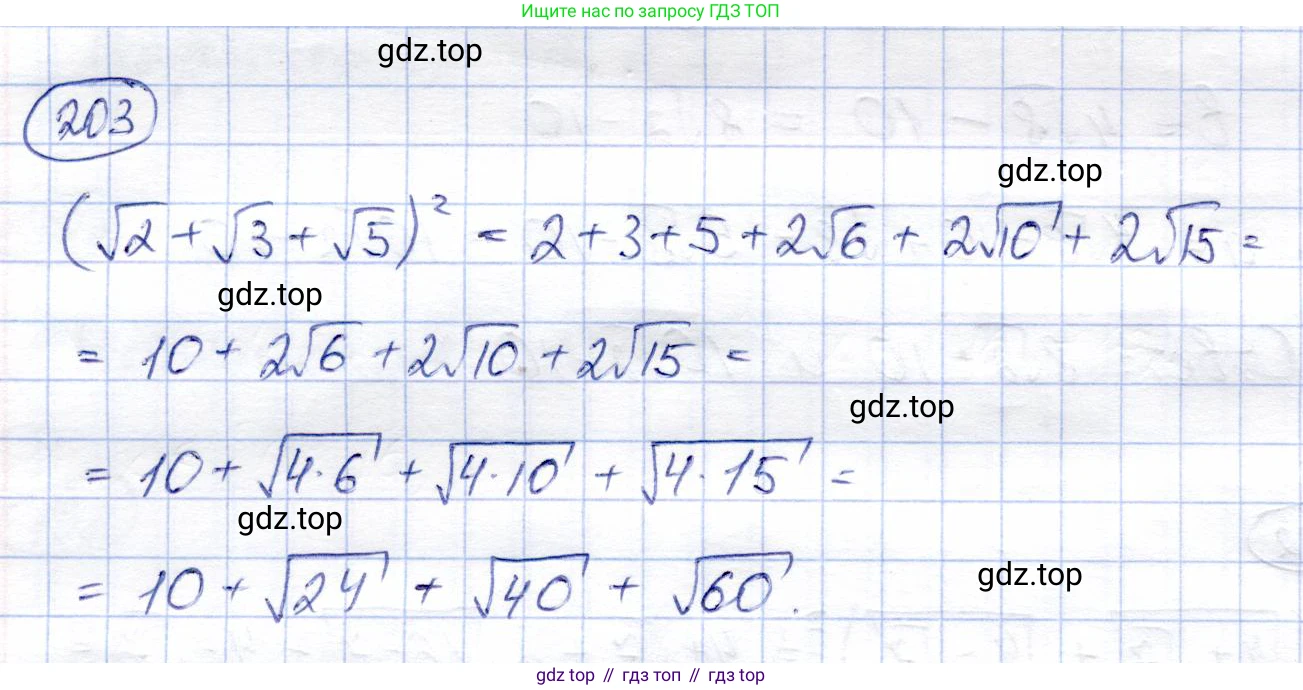 Ищите нас по запросу ГДЗ ТОП
gdz.top
203
gdz.top
(√2 + √3 + √5)² = 2 + 3 + 5 + 2√6 + 2√10 + 2√15 =
gdz.top
= 10 + 2√6 + 2√10 + 2√15 =
gdz.top
= 10 + √4·6 + √4·10 + √4·15 =
gdz.top
= 10 + √24 + √40 + √60.
gdz.top
gdz top // гдз топ // gdz top